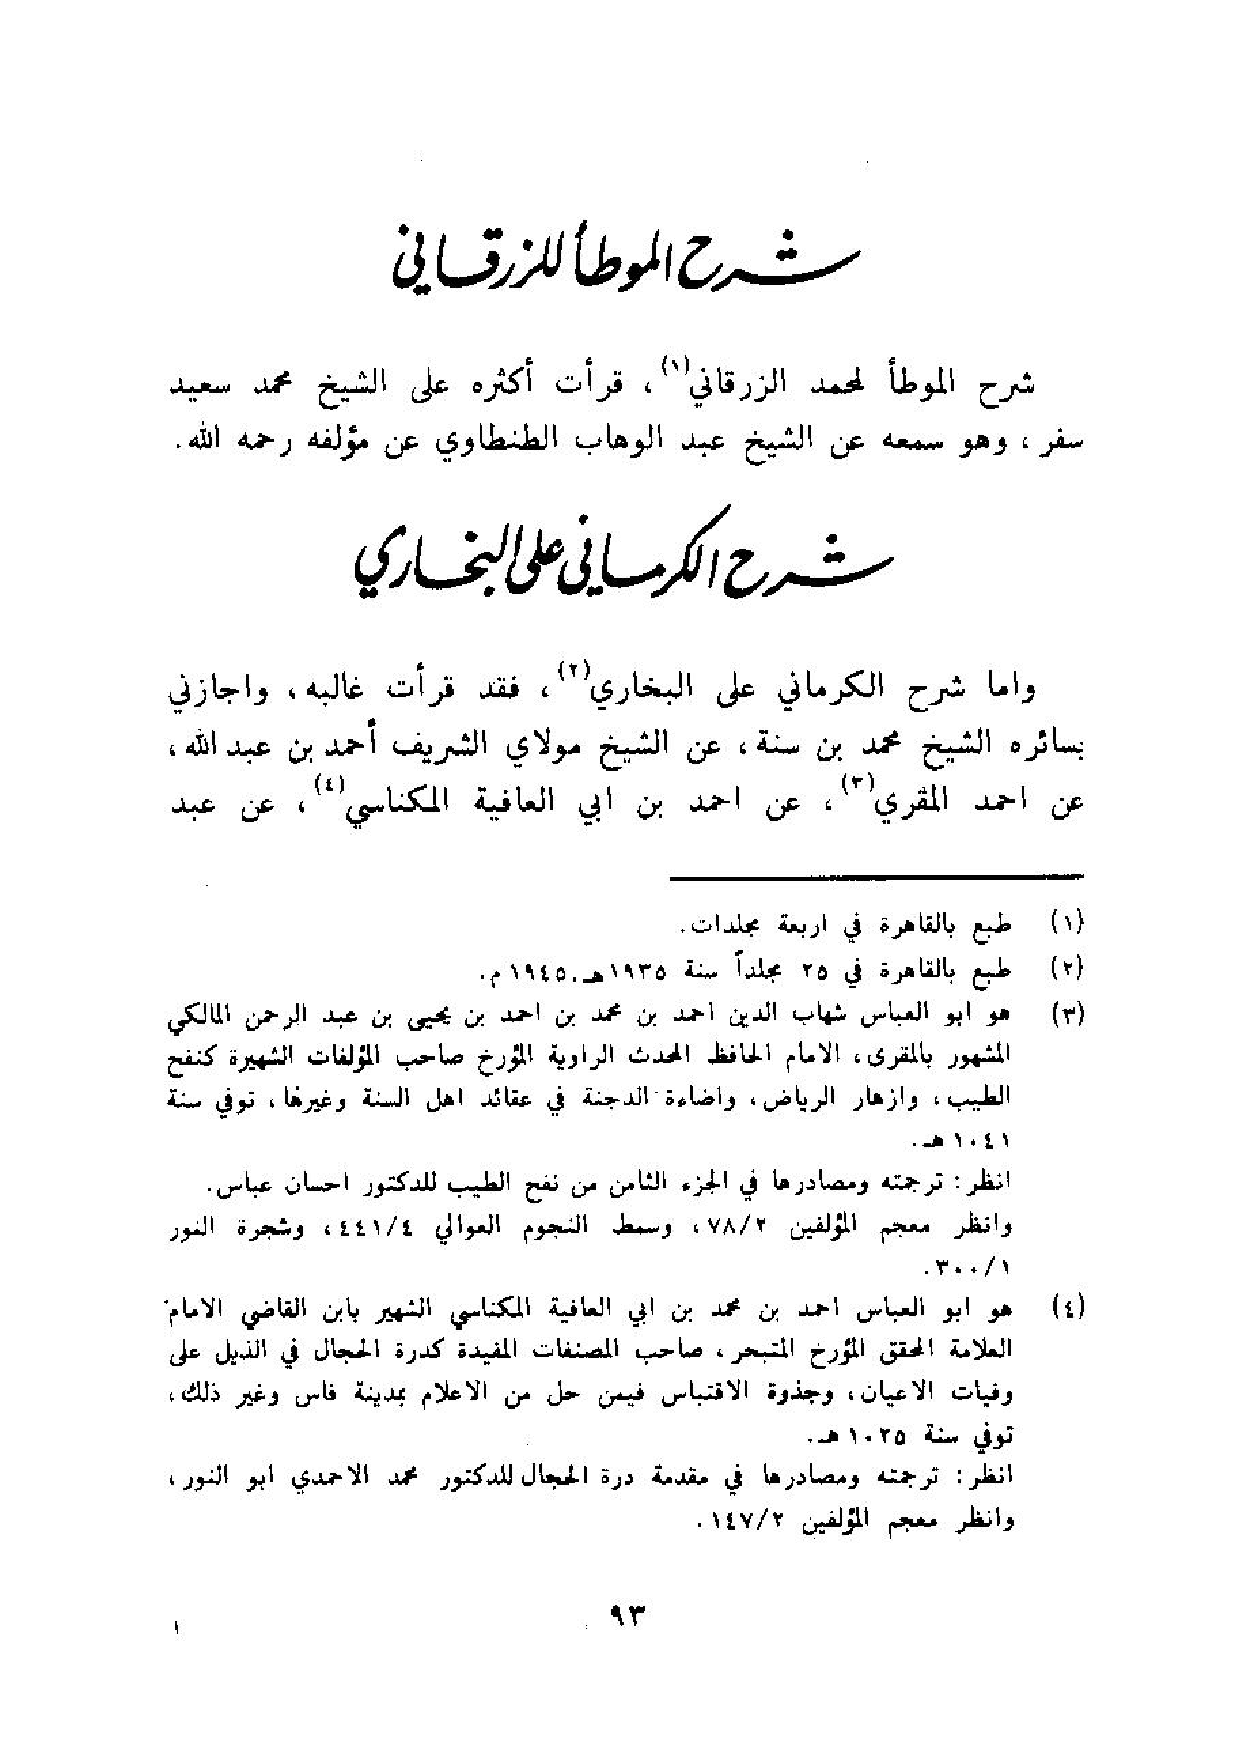 شرح الموطأ للزرقاني
شرح الموطأ لمحمد الزرقاني(١) ، قرأت أكثره على الشيخ محمد سعيد
سفر ، وهو سمعه عن الشيخ عبد الوهاب الطنطاوي عن مؤلفه رحمه الله.
شرح الكرماني على البخاري
واما شرح الكرماني على البخاري(٢) ، فقد قرأت غالبه ، واجازني
بسائره الشيخ محمد بن سنة، عن الشيخ مولاي الشريف أحمد بن عبد الله،
عن احمد المقري(٣) ، عن احمد بن ابي العافية المكناسي(٤) ، عن عبد
(١) طبع بالقاهرة في اربعة مجلدات.
(٢) طبع بالقاهرة في ٢٥ مجلداً سنة ١٩٣٥هـ.١٩٤٥ م.
(٣) هو ابو العباس شهاب الدين احمد بن محمد بن احمد بن يحيى بن عبد الرحمن المالكي
المشهور بالمقرى، الامام الحافظ المحدث الراوية المؤرخ صاحب المؤلفات الشهيرة كنفح
الطيب، وازهار الرياض، واضاءة الدجنة في عقائد اهل السنة وغيرها، توفي سنة
١٠٤١ هـ.
انظر: ترجمته ومصادرها في الجزء الثامن من نفح الطيب للدكتور احسان عباس.
وانظر معجم المؤلفين ٧٨/٢، وسمط النجوم العوالي ٤٤١/٤، وشجرة النور
٣٠٠/١.
(٤) هو ابو العباس احمد بن محمد بن ابي العافية المكناسي الشهير بابن القاضي الامام
العلامة المحقق المؤرخ المتبحر، صاحب المصنفات المفيدة كدرة الحجال في الذيل على
وفيات الاعيان، وجذوة الاقتباس فيمن حل من الاعلام بمدينة فاس وغير ذلك،
توفي سنة ١٠٢٥ هـ.
انظر: ترجمته ومصادرها في مقدمة درة الحجال للدكتور محمد الاحمدي ابو النور،
وانظر معجم المؤلفين ١٤٧/٢.
٩٣
١